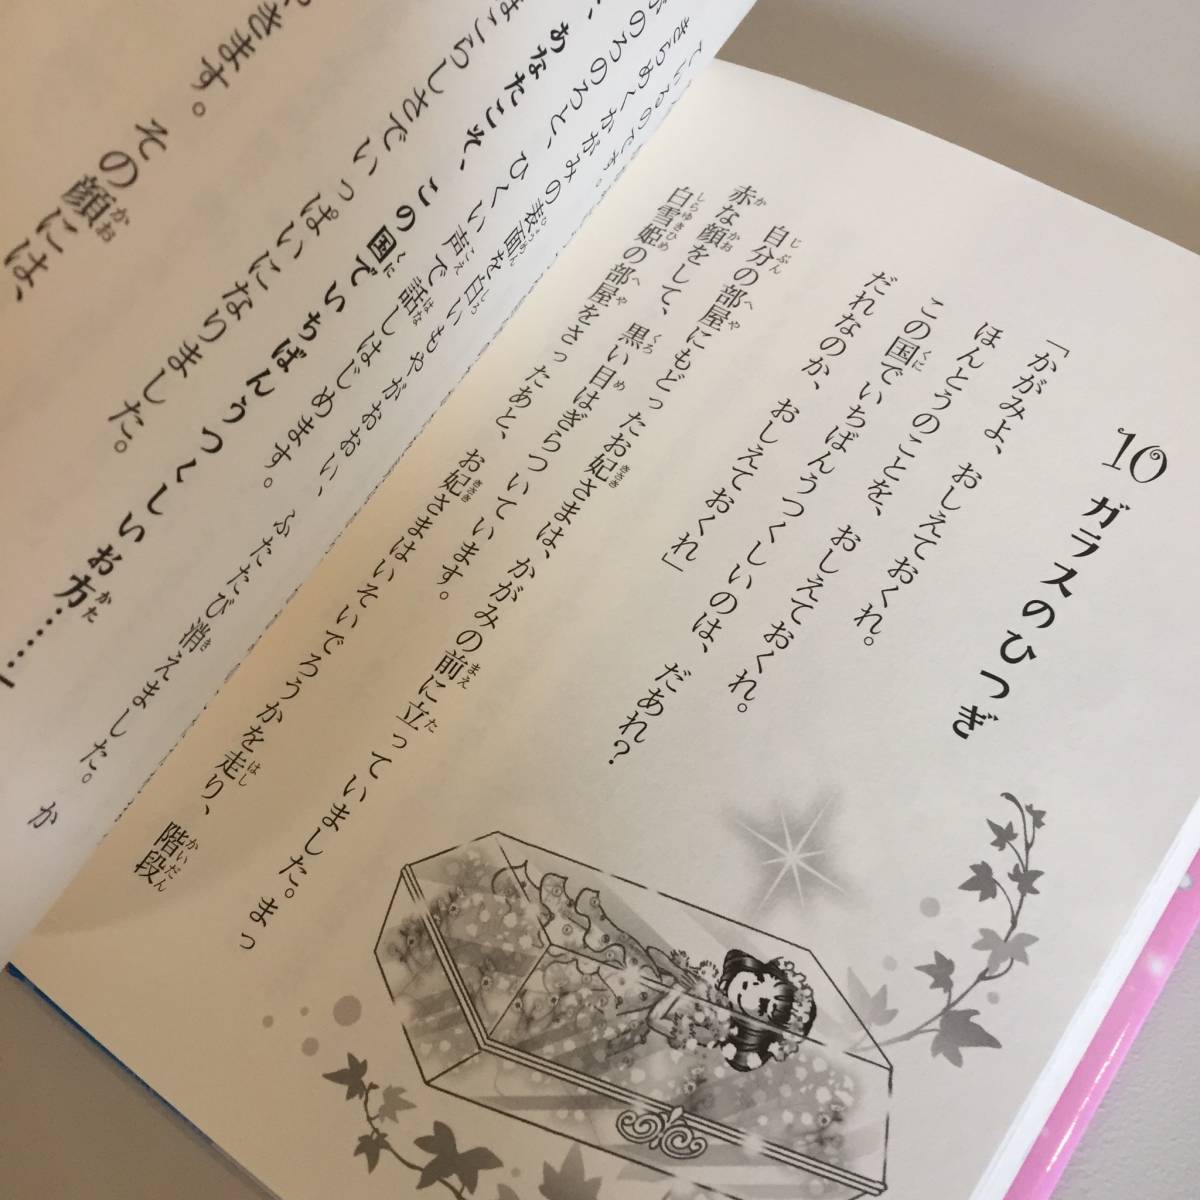 10 ガラスのひつぎ
「かがみよ、おしえておくれ。
ほんとうのことを、おしえておくれ。
この国でいちばんうつくしいのは、だあれ?
だれなのか、おしえておくれ」
自分の部屋にもどったお妃さまは、かがみの前に立っていました。まっ
赤な顔をして、黒い目はぎらついています。
白雪姫の部屋をさったあと、お妃さまはいそいでろうかを走り、階段
ているのです。
きらめくかがみの表面を白いもやがおおい、ふたたび消えました。か
のろのろと、ひくい声で話しはじめます。
、あなたこそ、この国でいちばんうつくしいお方……
ほこらしさでいっぱいになりました。
きます。その顔には、